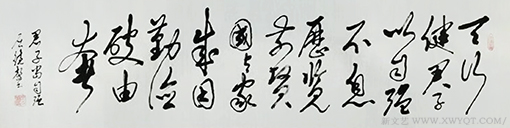 天行
健君子
以自强
不息
历览
前贤
國与家
成因
勤俭
破由
奢
君子当自强
新文艺 WWW.XWYQT.COM